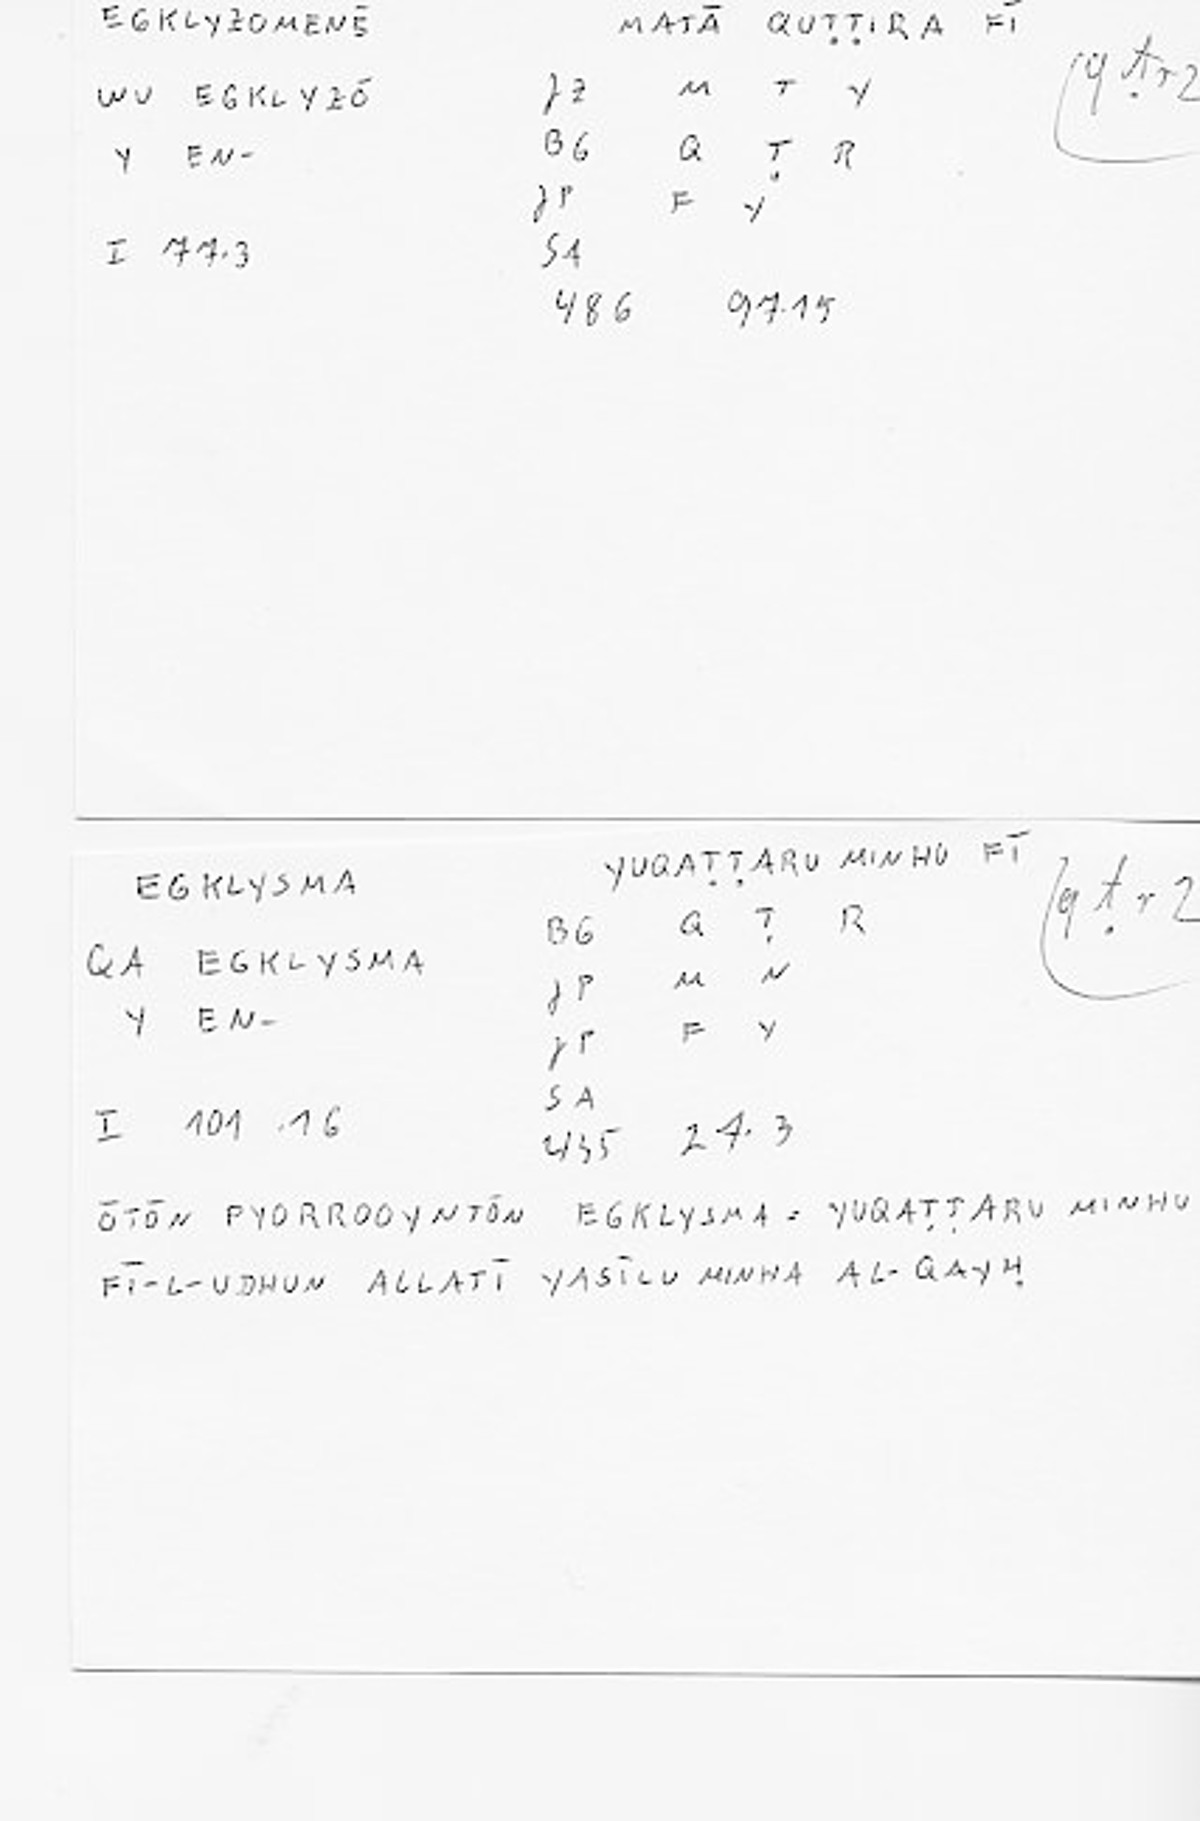 EGKLYZOMENĒ MATĀ QUṬṬIRA FĪ
qṭr2
WU EGKLYZŌ JZ M T Y
Y EN- BG Q Ṭ R
JP F Y
I 77.3 SA
486 97.15
EGKLYSMA YUQAṬṬARU MINHU FĪ
qṭr2
BG Q Ṭ R
QA EGKLYSMA JP M N
Y EN- JP F Y
SA
I 101.16 435 27.3
ŌTŌN PYORROOYNTŌN EGKLYSMA = YUQAṬṬARU MINHU
FĪ-L-UDHUN ALLATĪ YASĪLU MINHA AL-QAYḤ